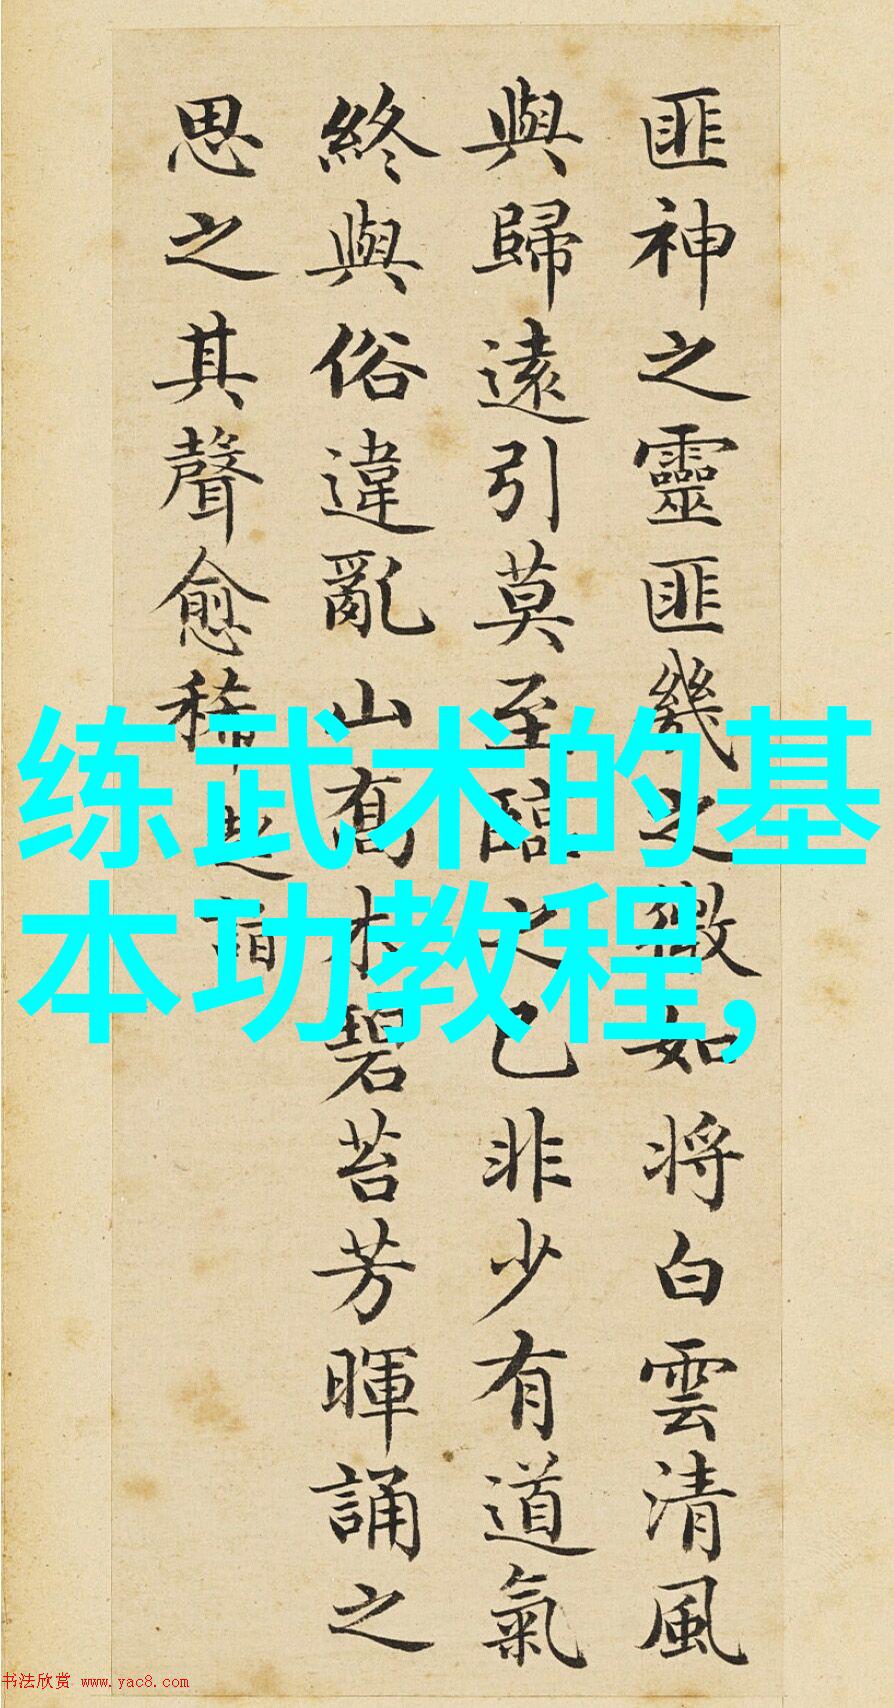 匪神之靈匪幾之微如将白雲清風
與歸遠引莫至臨之已非少有道氣
終與俗違亂山喬木碧苔芳暉誦之
思之其聲愈稀超詣
练武术的基
本功教程,
书法欣赏 www.yac8.com